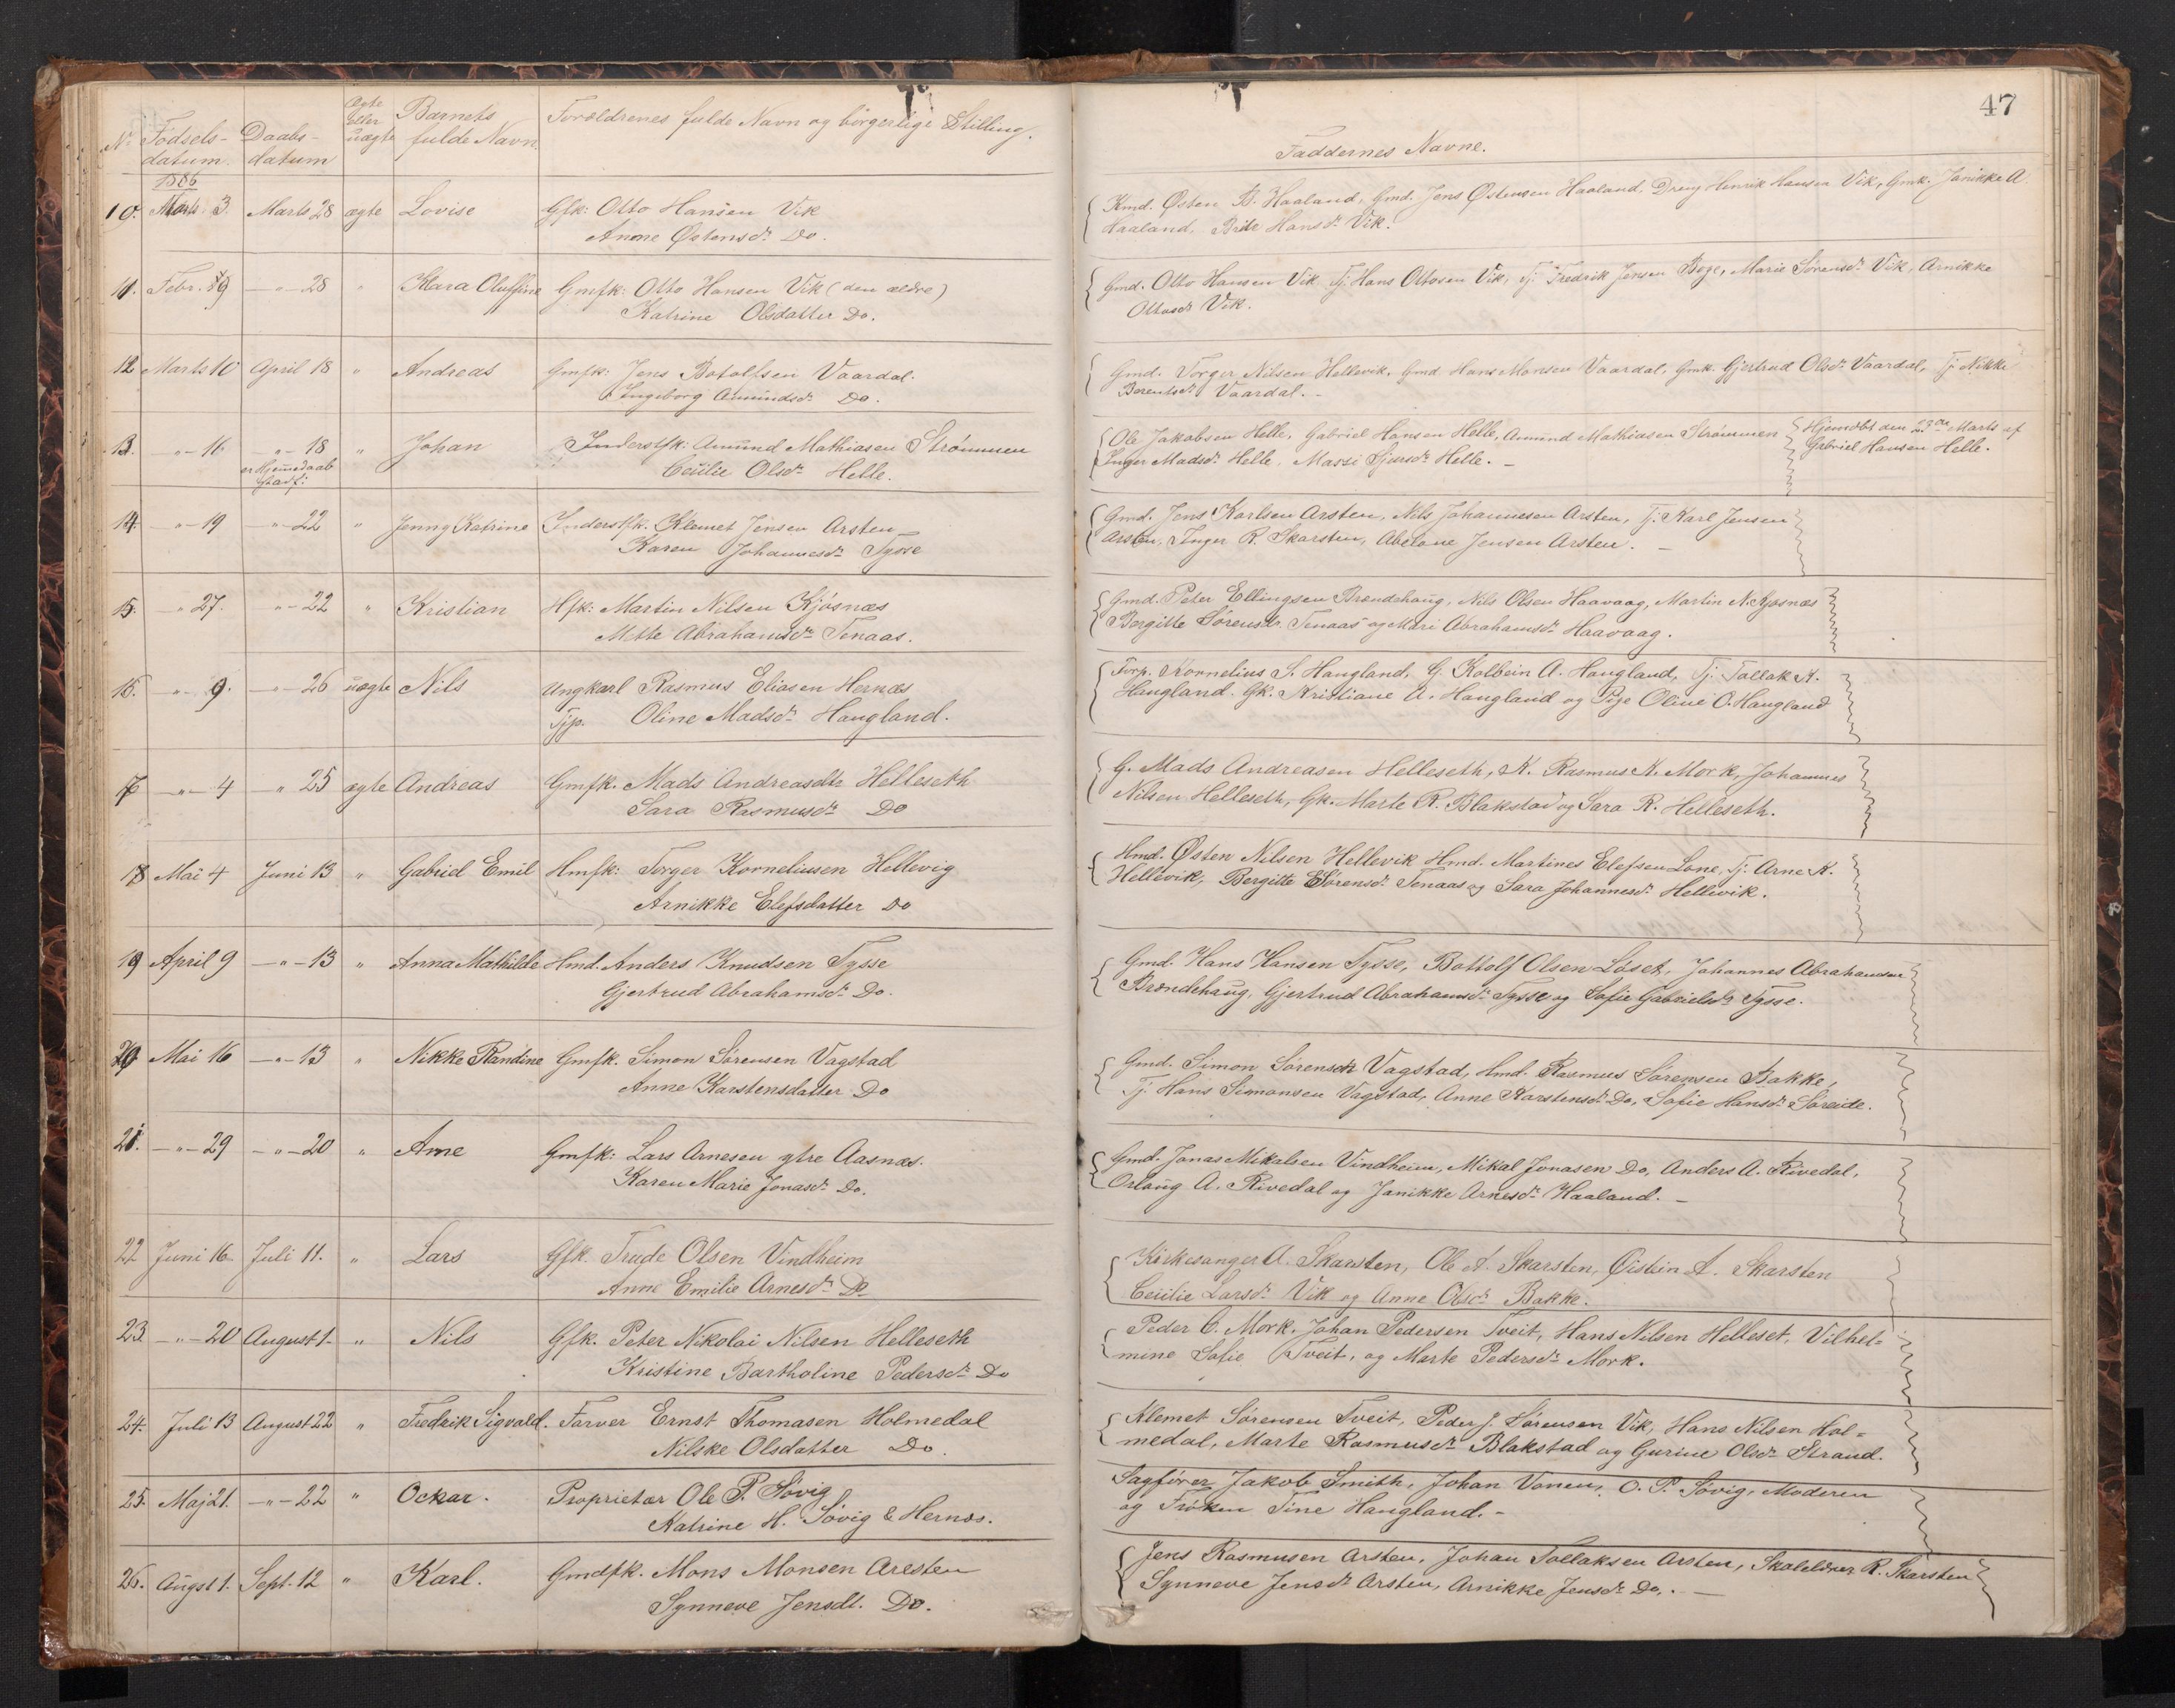 47
No Fødsels-datum. Daabs-datum Ægte eller uægte Barnets fulde Navn. Forældrenes fulde Navn og borgerlige Stilling.
Faddernes Navne.
1886
10. Marts 3. Marts 28 ægte Lovise Gfk: Otto Hansen Vik
Anne Østensdr Do.
Kmd. Østen B. Haaland, Gmd. Jens Østensen Haaland, Dreng Henrik Hansen Vik, Gmk. Janikke A
Haaland, Hansdr Vik.
11. Febr. 19 -"- 28 " Klara Olufine Gmfk: Otto Hansen Vik (den ældre)
Katrine Olsdatter Do.
Gmd. Otto Hansen Vik, Tj. Hans Ottosen Vik, Tj. Fredrik Jensen Boge, Marie Sørensdr Vik, Arnikke
Ottosdr Vik.
12 Marts 10 April 18 " Andreas Gmfk: Jens Botolfsen Vaardal.
Ingeborg Amundsdr Do.
Gmd. Torger Nilsen Hellevik, Gmd Hans Monsen Vaardal, Gmk. Gjertrud Olsdr Vaardal, Tj. Nikke
Berentsdr Vaardal. -
13. -"- 16. -"- 18 " Johan Inderstfk: Amund Mathiasen Strømmen
er Hjemmedaab
Cecilie Olsdr Helle.
Ole Jakobsen Helle, Gabriel Hansen Helle, Amund Mathiasen Strømmen
Inger Madsdr Helle, Massi Sjursdr Helle. -
Hjemdøbt den 23de Marts af
Gabriel Hansen Helle.
14. -"- 19 -"- 22 " Jenny Katrine Inderstfk: Klemet Jensen Arsten
Karen Johannesdr Tysse
Gmd. Jens Karlsen Arsten, Nils Johannesen Arsten, Tj. Karl Jensen
Arsten, Inger R. Skarsten, Abelone Jensen Arsten. -
15. -"- 27. -"- 22 " Kristian Hfk: Martin Nilsen Kjøsnæs
Mette Abrahamsdr Tenaas.
Gmd. Peter Ellingsen Brændehaug, Nils Olsen Haavaag, Martin N. Kjøsnæs
Bergitte Sørensdr. Tenaas og Mari Abrahamsdr Haavaag.
16. -"- 9. -"- 26 uægte Nils Ungkarl Rasmus Eliasen Hernæs
Tjp. Oline Madsdr Haugland.
Forp. Kornelius S. Haugland, G. Kolbein A. Haugland, Tj. Tollak K.
Haugland. Gk. Kristiane A. Haugland og Pige Oline O. Haugland
17 -"- 4 -"- 25 ægte Andreas Gmfk. Mads Andreasdtr Helleseth
Sara Rasmusdr Do
G. Mads Andreasen Helleseth, K. Rasmus K. Mork, Johannes
Nilsen Helleseth, Gk. Marte R. Blakstad og Sara R. Helleseth.
18 Mai 4 Juni 13 " Gabriel Emil Hmfk: Torger Korneliusen Hellevig
Arnikke Elefsdatter Do
Hmd. Østen Nilsen Hellevik Hmd. Martines Elefsen Lone, Tj. Arne K.
Hellevik, Bergitte Sørensdr Tenaas og Sara Johannesdr Hellevik.
19 April 9 -"- 13 " Anna Mathilde Hmd. Anders Knudsen Tysse
Gjertrud Abrahamsdr Do.
Gmd. Hans Hansen Tysse, Bottolf Olsen Løset, Johannes Abrahamsen
Brændehaug, Gjertrud Abrahamsdr Tysse og Sofie Gabrielsdr Tysse.
20 Mai 16 -"- 13 " Nikke Randine Gmfk. Simon Sørensen Vagstad
Anne Karstensdatter Do
Gmd. Simon Sørensen Vagstad, Hmd. Rasmus Sørensen Bakke,
Tj. Hans Simonsen Vagstad, Anne Karstensdr Do, Sofie Hansdr Søreide.
21. -"- 29 -"- 20 " Arne Gmfk: Lars Arnesen ytre Aasnæs.
Karen Marie Jonasdr Do.
Gmd. Jonas Mikalsen Vindheim, Mikal Jonasen Do, Anders A. Rivedal,
Orlaug A. Rivedal og Janikke Arnesdr Haaland. -
22 Juni 16 Juli 11. " Lars Gfk. Trude Olsen Vindheim
Anne Emilie Arnesdr Do
Kirkesanger A. Skarsten, Ole A. Skarsten, Øistein A. Skarsten
Cecilie Larsdr Vik og Anne Olsdr Bakke.
23. -"- 20 August 1. " Nils Gfk. Peter Nikolai Nilsen Helleseth
Kristine Bartholine Pedersdr Do
Peder C. Mork, Johan Pedersen Tveit, Hans Nilsen Helleset, Vilhel=
mine Sofie Tveit, og Marte Pedersdr Mork.
24. Juli 13 August 22 " Fredrik Sigvald. Farver Ernst Thomasen Holmedal
Nilske Olsdatter Do.
Klemet Sørensen Tveit, Peder J. Sørensen Vik, Hans Nilsen Hol=
medal, Marte Rasmusdr Blakstad og Gurine Olsdr Strand.
25. Maj 21. -"- 22 " Ockar. Proprietær Ole P. Søvig
Katrine H. Søvig & Hernæs.
Sagfører Jakob Smith, Johan Vonen, O. P. Søvig, Moderen
og Frøken Tine Haugland. -
26. Augst 1. Sept. 12 " Karl. Gmdfk. Mons Monsen Aresten
Synneve Jensdt. Do.
Jens Rasmusen Arsten, Johan Tollaksen Arsten, Skolelærer R. Skarsten
Synneve Jensdr Arsten, Arnikke Jensdr Do. -